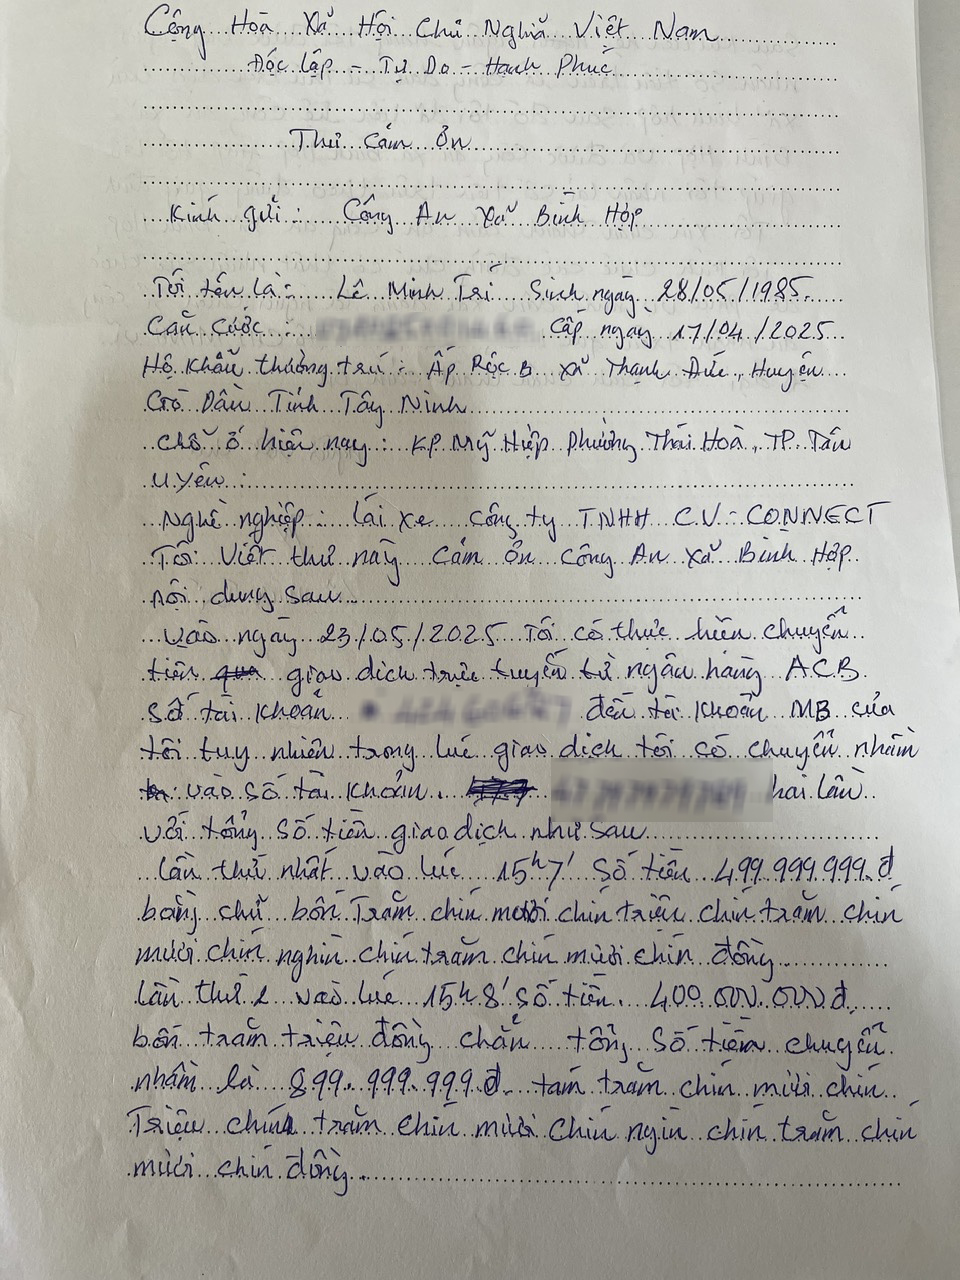 Cộng Hoà Xã Hội Chủ Nghĩa Việt Nam
Độc lập - Tự Do - Hạnh Phúc
Thư Cảm Ơn
Kính gửi : Công An Xã Bình Hợp
Tôi tên là : Lê Minh Trí Sinh ngày 28/05/1985.
Căn Cước : Cấp ngày 17/04/2025
Hộ khẩu thường trú : Ấp Rộc B xã Thạnh Đức, Huyện
Gò Dầu Tỉnh Tây Ninh
chỗ ở hiện nay : KP Mỹ Hiệp Phường Thái Hoà, TP Tân
Uyên :
Nghề nghiệp : lái xe công ty TNHH C.V - CONNECT
Tôi viết thư này cảm ơn Công An xã Bình Hợp
nội dung sau
Vào ngày 23/05/2025 Tôi có thực hiện chuyển
tiền giao dịch trực tuyến từ ngân hàng ACB
số tài khoản đến tài khoản MB của
tôi tuy nhiên trong lúc giao dịch tôi có chuyển nhầm
vào số tài khoản hai lần
với tổng số tiền giao dịch như sau
lần thứ nhất vào lúc 15h7' số tiền 499.999.999 đ
bằng chữ bốn Trăm chín mươi chín triệu chín trăm chín
mươi chín nghìn chín trăm chín mươi chín đồng
lần thứ 2 vào lúc 15h8' số tiền 400.000.000 đ
bốn trăm triệu đồng chẵn tổng số tiền chuyển
nhầm là 899.999.999 đ tám trăm chín mươi chín
Triệu chín trăm chín mươi chín ngìn chín trăm chín
mươi chín đồng